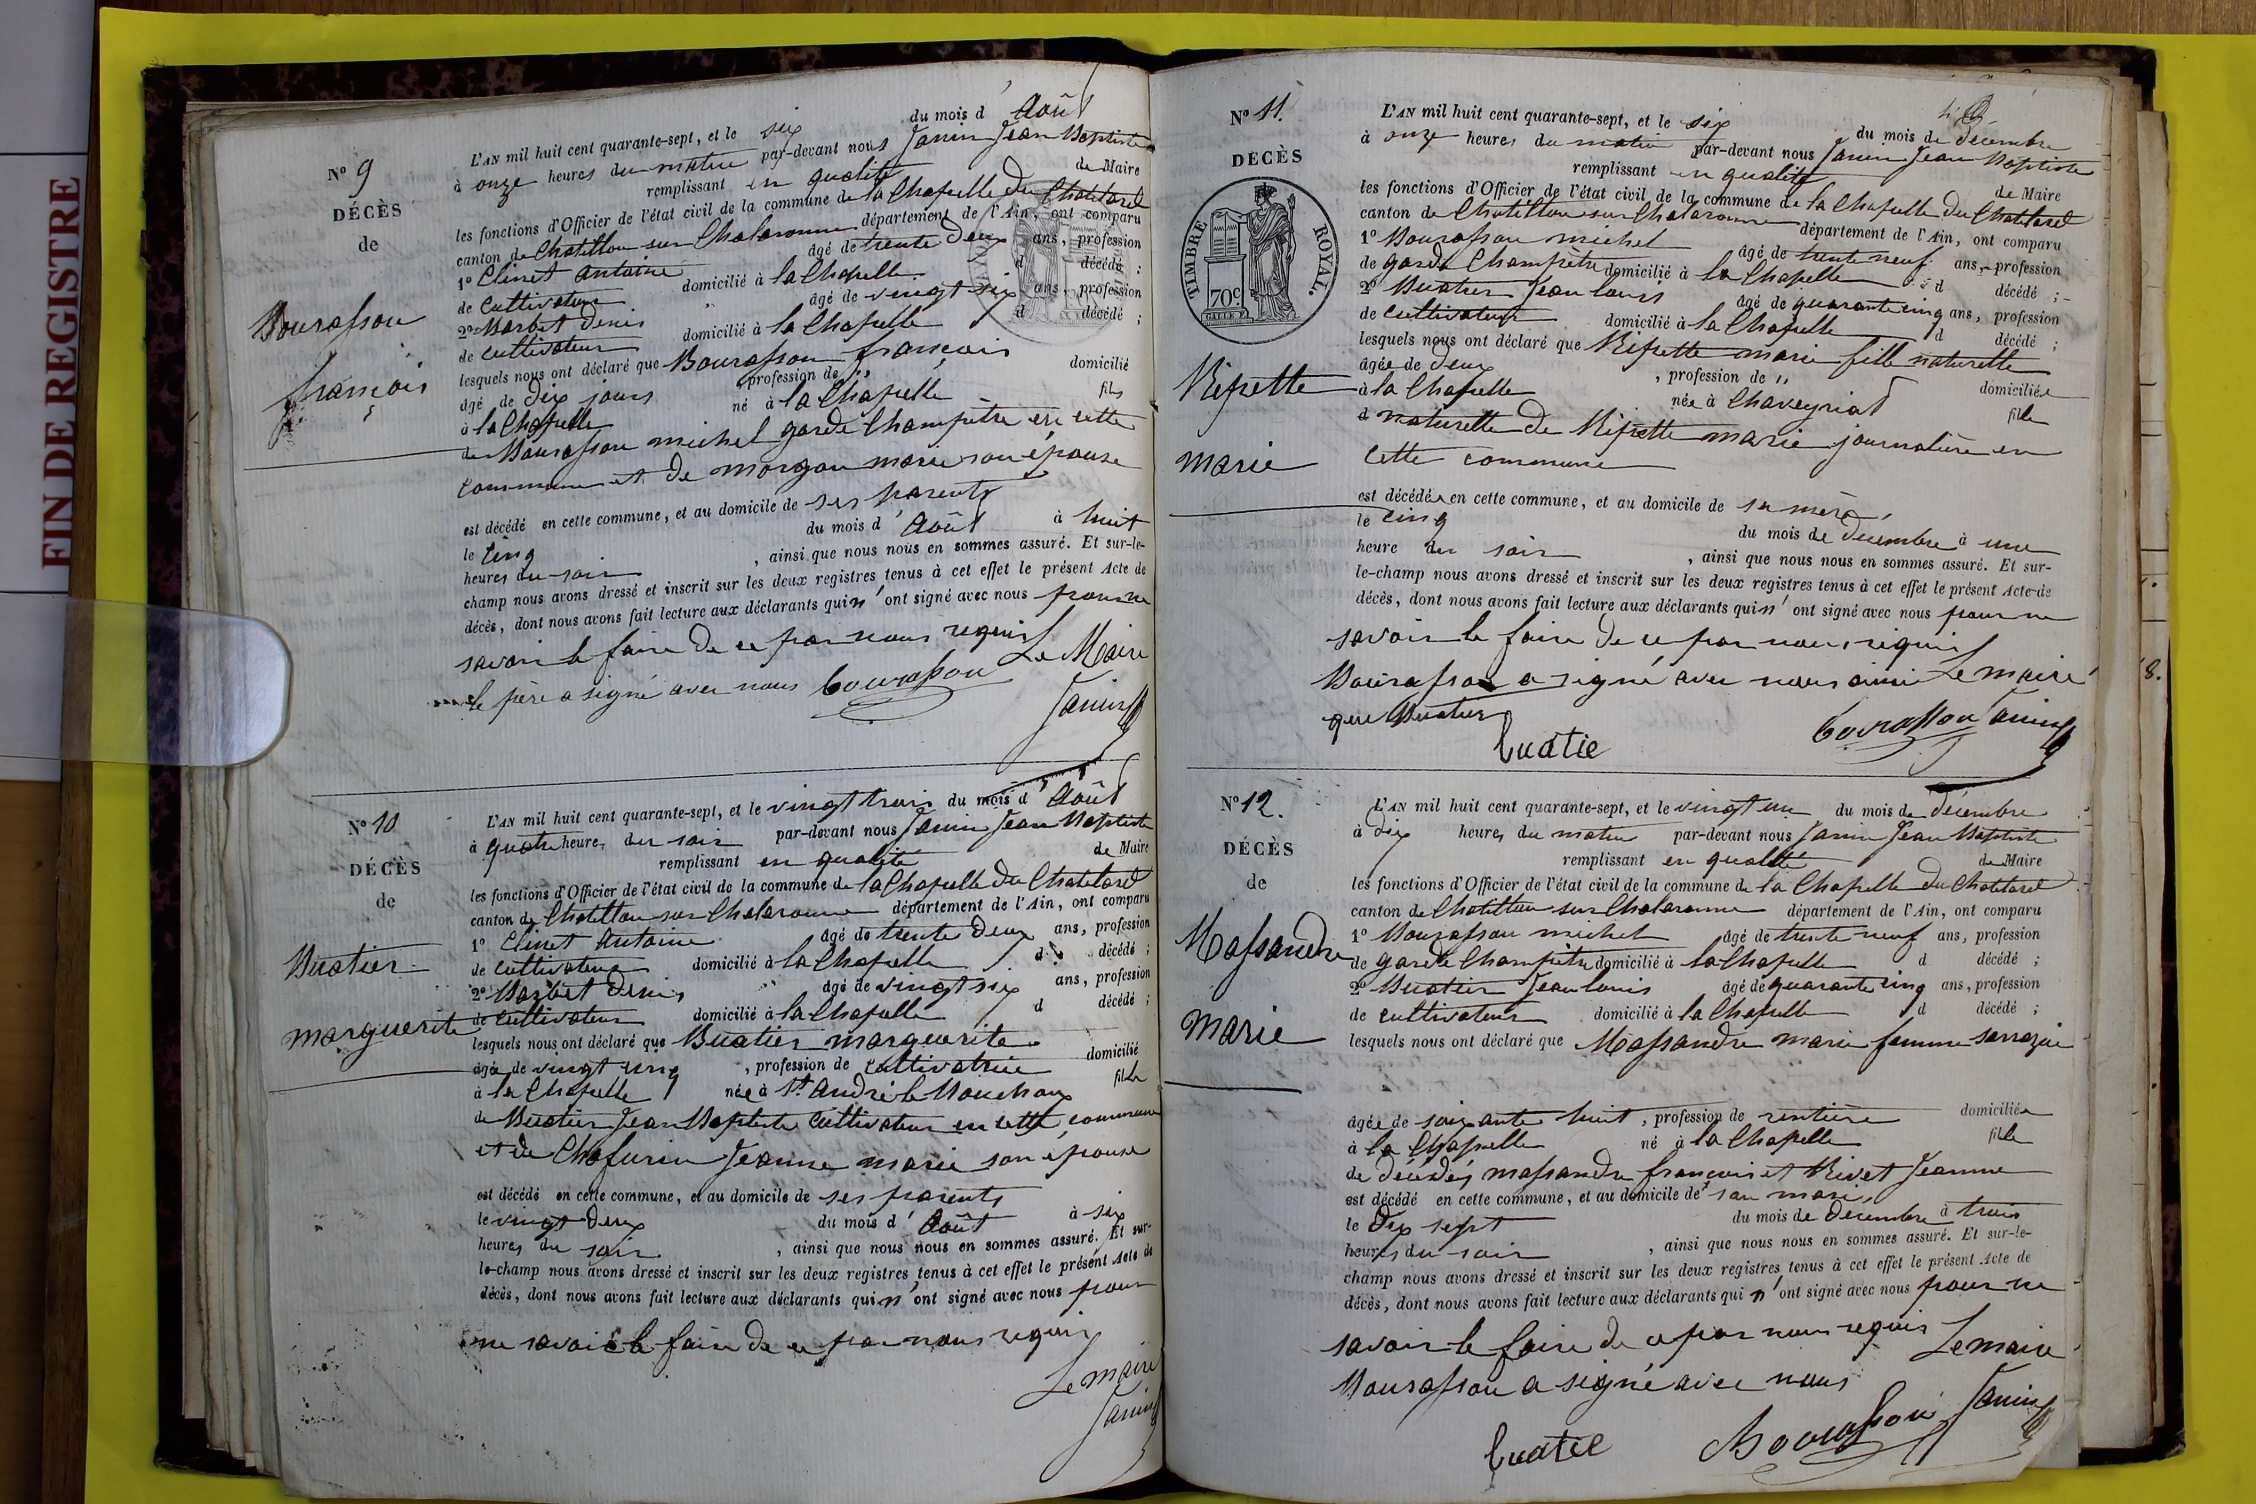 FIN DE REGISTRE
N° 9
DÉCÈS
de
Bourasson
françois
L'AN mil huit cent quarante-sept, et le six du mois d'Août
à onze heures du matin par-devant nous Janin Jean Baptiste
remplissant en qualité de Maire
les fonctions d'Officier de l'état civil de la commune de la Chapelle du Chatelard
canton de Chatillon sur Chalaronne département de l'Ain, ont comparu
1° Clinet Antoine âgé de trente deux ans, profession
de cultivateur domicilié à la Chapelle d décédé ;
2° Barbet Denis âgé de vingt six ans, profession
de cultivateur domicilié à la Chapelle d décédé ;
lesquels nous ont déclaré que Bourasson françois
âgé de dix jours profession de " domicilié
à la Chapelle né à la Chapelle fils
de Bourasson michel garde Champêtre en cette
commune et de morgon marie son épouse
est décédé en cette commune, et au domicile de ses parents
le cinq du mois d'Août à huit
heures du soir , ainsi que nous nous en sommes assuré. Et sur-le-
champ nous avons dressé et inscrit sur les deux registres tenus à cet effet le présent Acte de
décès, dont nous avons fait lecture aux déclarants qui n'ont signé avec nous pour ne
savoir le faire de ce par nous requis Le Maire
le père a signé avec nous bourasson
Janin
N° 10
DÉCÈS
de
Buatier
marguerite
L'AN mil huit cent quarante-sept, et le vingt trois du mois d'Août
à quatre heures du soir par-devant nous Janin Jean Baptiste
remplissant en qualité de Maire
les fonctions d'Officier de l'état civil de la commune de la Chapelle du Chatelard
canton de Chatillon sur Chalaronne département de l'Ain, ont comparu
1° Clinet Antoine âgé de trente deux ans, profession
de cultivateur domicilié à la Chapelle d décédé ;
2° Barbet Denis âgé de vingt six ans, profession
de cultivateur domicilié à la Chapelle d décédé ;
lesquels nous ont déclaré que Buatier marguerite
âgée de vingt cinq , profession de cultivatrice domicilié
à la Chapelle née à St André le Bouchoux fille
de Buatier Jean Baptiste cultivateur en cette commune
et de Jeanne marie son épouse
est décédé en cette commune, et au domicile de ses parents
le vingt deux du mois d'Août à six
heures du soir , ainsi que nous nous en sommes assuré. Et sur-
le-champ nous avons dressé et inscrit sur les deux registres tenus à cet effet le présent Acte de
décès, dont nous avons fait lecture aux déclarants qui n'ont signé avec nous pour
ne savoir le faire de ce par nous requis
Le maire
Janin
N° 11.
DÉCÈS
TIMBRE ROYAL.
70c.
marie
L'AN mil huit cent quarante-sept, et le six du mois de décembre
à onze heures du matin par-devant nous Janin Jean Baptiste
remplissant en qualité de Maire
les fonctions d'Officier de l'état civil de la commune de la Chapelle du Chatelard
canton de Chatillon sur Chalaronne département de l'Ain, ont comparu
1° Bourasson michel âgé de trente neuf ans, profession
de garde Champêtre domicilié à la Chapelle d décédé ;
2° Buatier Jean louis âgé de quarante cinq ans, profession
de cultivateur domicilié à la Chapelle d décédé ;
lesquels nous ont déclaré que marie fille naturelle
âgée de deux , profession de " domiciliée
à la Chapelle née à Chaveyriat fille
d naturelle de marie journalière en
cette commune
est décédée en cette commune, et au domicile de sa mère,
le cinq du mois de décembre à une
heure du soir , ainsi que nous nous en sommes assuré. Et sur-
le-champ nous avons dressé et inscrit sur les deux registres tenus à cet effet le présent Acte de
décès, dont nous avons fait lecture aux déclarants qui n'ont signé avec nous pour ne
savoir le faire de ce par nous requis
Bourasson a signé avec nous ainsi Le maire
que Buatier
buatie bourasson Janin
N° 12.
DÉCÈS
de
Massandre
Marie
L'AN mil huit cent quarante-sept, et le vingt un du mois de décembre
à dix heures du matin par-devant nous Janin Jean Baptiste
remplissant en qualité de Maire
les fonctions d'Officier de l'état civil de la commune de la Chapelle du Chatelard
canton de Chatillon sur Chalaronne département de l'Ain, ont comparu
1° Bourasson michel âgé de trente neuf ans, profession
de garde Champêtre domicilié à la Chapelle d décédé ;
2° Buatier Jean louis âgé de quarante cinq ans, profession
de cultivateur domicilié à la Chapelle d décédé ;
lesquels nous ont déclaré que Massandre marie femme sarrazin
âgée de soixante huit , profession de rentière domiciliée
à la Chapelle né à la Chapelle fille
de décédés massandre françois et Rivet Jeanne
est décédé en cette commune, et au domicile de son mari,
le dix sept du mois de décembre à trois
heures du soir , ainsi que nous nous en sommes assuré. Et sur-le-
champ nous avons dressé et inscrit sur les deux registres tenus à cet effet le présent Acte de
décès, dont nous avons fait lecture aux déclarants qui n'ont signé avec nous pour ne
savoir le faire de ce par nous requis Le maire
Bourasson a signé avec nous
buatie Bourasson Janin
8.